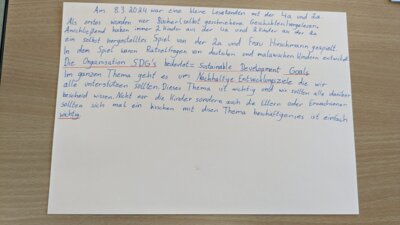 Am 8.3.2024 war eine kleine Lesestunden mit der 4a und 2a.
Als erstes wurden vor Bücher (selbst geschriebene Geschichten) vorgelesen.
Anschließend haben immer 2 Kinder aus der 4a und 2 Kinder aus der 2a
ein selbst hergestelltes Spiel von der 2a und Frau Hirschmann gespielt.
In dem Spiel waren Rätselfragen von deutschen und malawischen Kindern entwickelt.
Die Organisation SDG's bedeutet = Sustainable Development Goals
Im ganzen Thema geht es ums Nachhaltige Entwicklungsziele die wir
alle unterstützen sollten. Dieses Thema ist wichtig und wir sollten alle darüber
bescheid wissen. Nicht nur die Kinder sondern auch die Eltern oder Erwachsenen
sollten sich mal ein bischen mit dem Thema beschäftigen es ist einfach
wichtig.